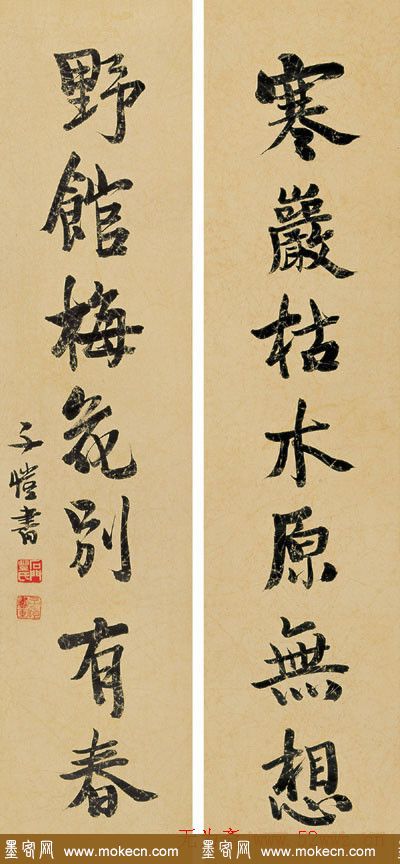 寒巖枯木原無想
野館梅花別有春
子愷書
石門豐氏
墨客网 www.mokecn.com 墨客网 www.mokecn.com